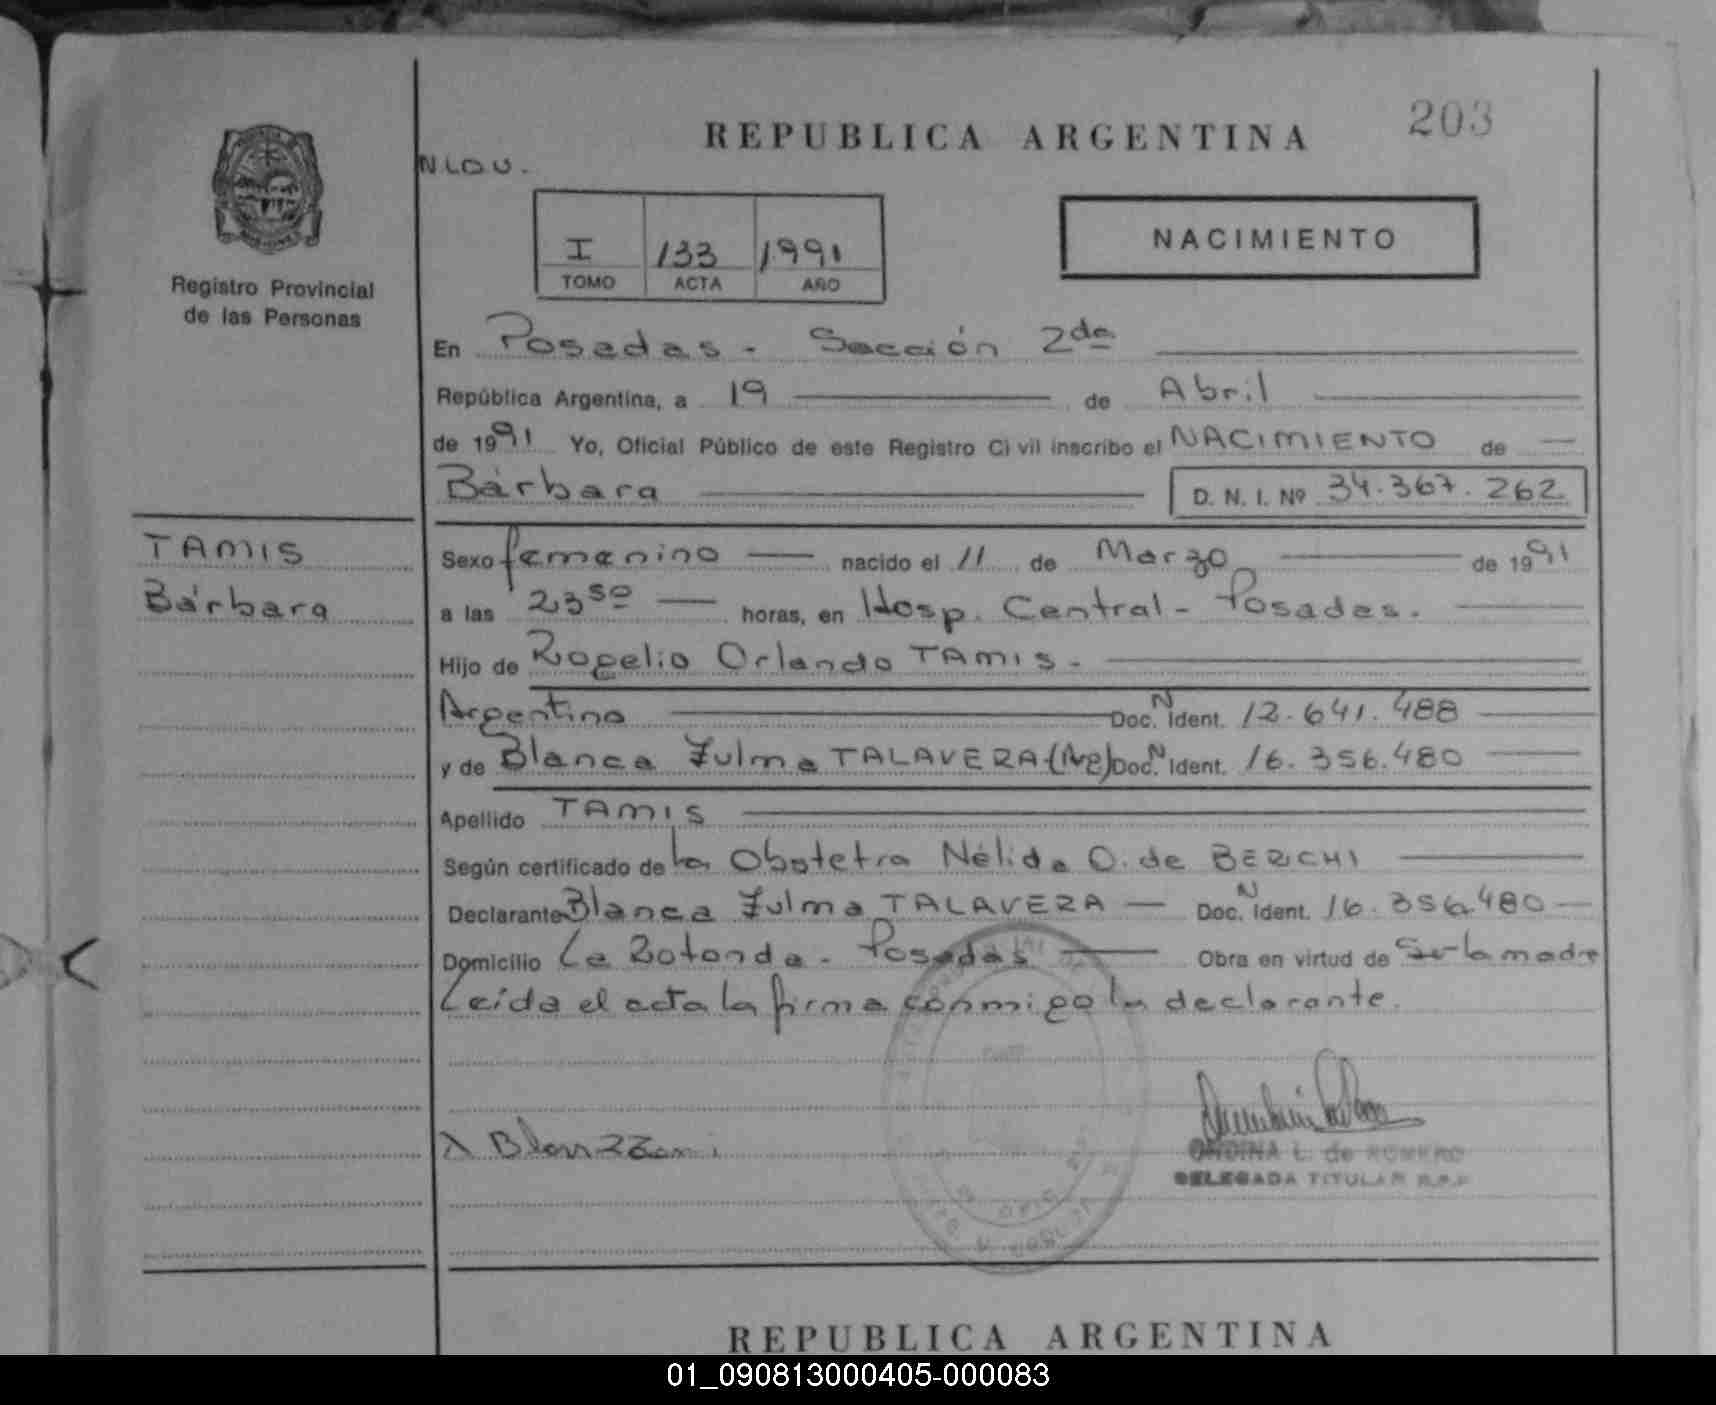 203
REPUBLICA ARGENTINA
N.L.O.U.
I 133 1991
TOMO ACTA AÑO
NACIMIENTO
Registro Provincial
de las Personas
En Posadas - Sección 2da
República Argentina, a 19 de Abril
de 1991 Yo, Oficial Público de este Registro Civil inscribo el NACIMIENTO de
Bárbara D. N. I. Nº 34.367.262
TAMIS
Bárbara
Sexo femenino nacido el 11 de Marzo de 1991
a las 23 50 horas, en Hosp. Central - Posadas.
Hijo de Rogelio Orlando TAMIS.-
Argentino Doc. N Ident. 12.641.488
y de Blanca Zulma TALAVERA (Arg) Doc. N Ident. 16.356.480
Apellido TAMIS
Según certificado de la Obstetra Nélida O. de BERCHI
Declarante Blanca Zulma TALAVERA Doc. N Ident. 16.356.480
Domicilio La Rotonda - Posadas Obra en virtud de Ser la madre
Leída el acta la firma conmigo la declarante.
ONDINA L. de ROMERO
DELEGADA TITULAR R.P.P
REPUBLICA ARGENTINA
01_090813000405-000083